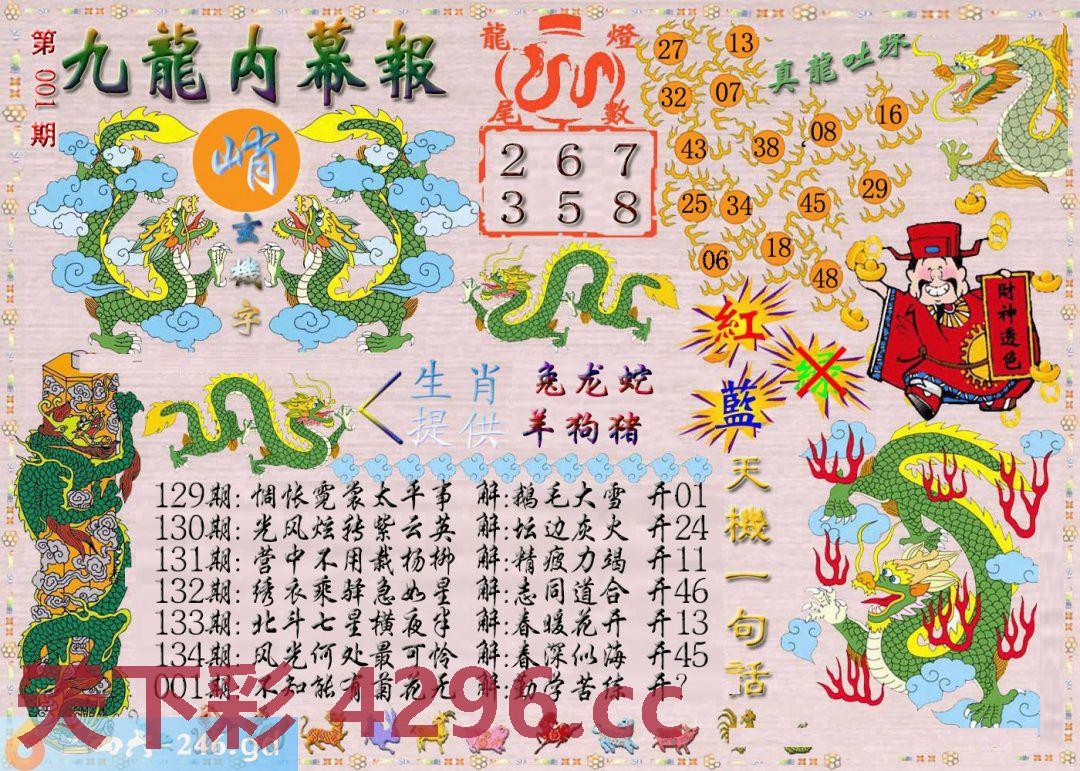 第001期
九龍内幕報
峭
玄機字
龍燈
尾數
2 6 7
3 5 8
27
13
32
07
真龍吐珠
43
38
08
16
25
34
45
29
06
18
48
紅
绿
藍
財神透色
生肖
提供
兔龙蛇
羊狗猪
天機一句話
129期: 惆怅霓裳太平事 解:鹅毛大雪 开01
130期: 光风炫转紫云英 解:坛边灰火 开24
131期: 营中不用栽杨柳 解:精疲力竭 开11
132期: 绣衣乘驿急如星 解:志同道合 开46
133期: 北斗七星横夜半 解:春暖花开 开13
134期: 风光何处最可怜 解:春深似海 开45
001期: 不知能有菊花无 解:勤学苦练 开?
天下彩 4296.cc
=246.gd